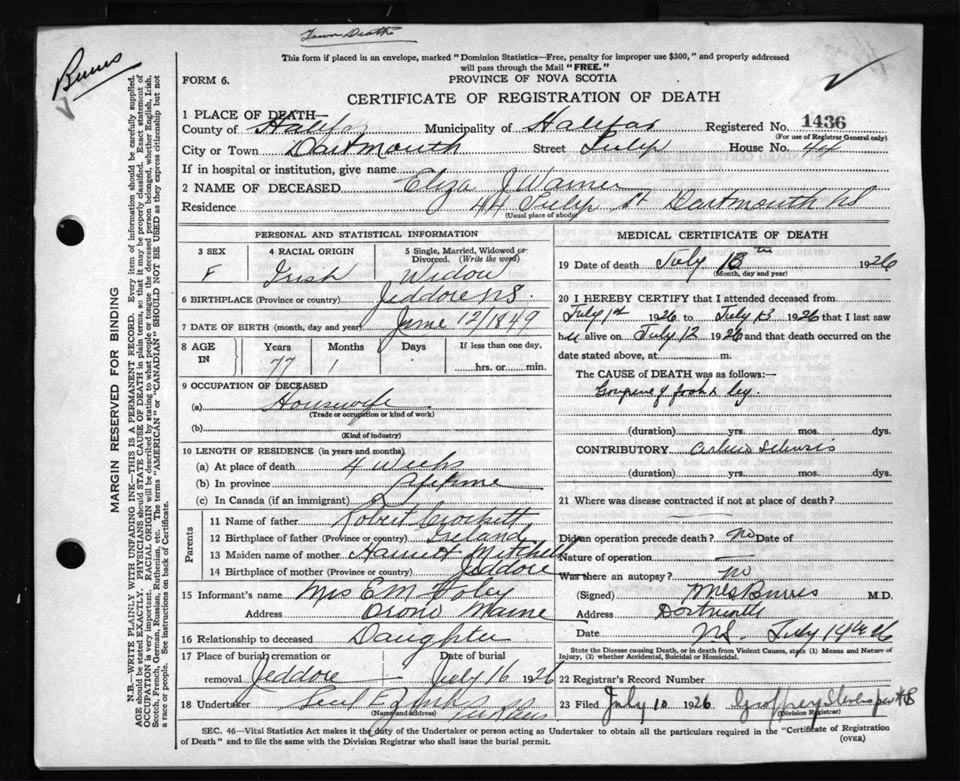 Town Death
Burris
This form if placed in an envelope, marked "Dominion Statistics—Free, penalty for improper use $300," and properly addressed
will pass through the Mail "FREE."
FORM 6.
PROVINCE OF NOVA SCOTIA
CERTIFICATE OF REGISTRATION OF DEATH
1 PLACE OF DEATH—
County of Halifax Municipality of Halifax Registered No. 1436
(For use of Registrar General only)
City or Town Dartmouth Street Tulip House No. 44
If in hospital or institution, give name
2 NAME OF DECEASED Eliza J Warner
Residence 44 Tulip St Dartmouth NS
(Usual place of abode)
PERSONAL AND STATISTICAL INFORMATION
3 SEX 4 RACIAL ORIGIN 5 Single, Married, Widowed or Divorced. (Write the word)
F Irish Widow
6 BIRTHPLACE (Province or country) Jeddore NS.
7 DATE OF BIRTH (month, day and year) June 12/1849
8 AGE IN Years Months Days If less than one day,
77 1 hrs. or min.
9 OCCUPATION OF DECEASED
(a) Housewife
(Trade or occupation or kind of work)
(b)
(Kind of industry)
10 LENGTH OF RESIDENCE (in years and months)
(a) At place of death 4 weeks
(b) In province Lifetime
(c) In Canada (if an immigrant)
Parents
11 Name of father Robert Crockett
12 Birthplace of father (Province or country) Ireland
13 Maiden name of mother Harriet Mitchell
14 Birthplace of mother (Province or country) Jeddore
15 Informant's name Mrs E M
Address Orono Maine
16 Relationship to deceased Daughter
17 Place of burial cremation or Date of burial
removal Jeddore July 16 1926
18 Undertaker
(Name and address)
MEDICAL CERTIFICATE OF DEATH
19 Date of death July 13th 1926
(Month, day and year)
20 I HEREBY CERTIFY that I attended deceased from
July 1st 1926 to July 13 1926 that I last saw
her alive on July 12 1926 and that death occurred on the
date stated above, at m.
The CAUSE of DEATH was as follows:—
Gangrene of foot & leg.
(duration) yrs. mos. dys.
CONTRIBUTORY
(duration) yrs. mos. dys.
21 Where was disease contracted if not at place of death?
Did an operation precede death? no Date of
Nature of operation
Was there an autopsy? no
(Signed) Burris M.D.
Address Dartmouth
Date NS. July 14th 26
State the Disease causing Death, or in death from Violent Causes, state (1) Means and Nature of
Injury, (2) whether Accidental, Suicidal or Homicidal.
22 Registrar's Record Number
23 Filed July 1926
(Division Registrar)
SEC. 46—Vital Statistics Act makes it the duty of the Undertaker or person acting as Undertaker to obtain all the particulars required in the "Certificate of Registration
of Death" and to file the same with the Division Registrar who shall issue the burial permit. (OVER)
MARGIN RESERVED FOR BINDING
N.B.—WRITE PLAINLY WITH UNFADING INK—THIS IS A PERMANENT RECORD. Every item of information should be carefully supplied.
AGE should be stated EXACTLY. PHYSICIANS should STATE CAUSE OF DEATH in plain terms, so that it may be properly classified. Exact statement of
OCCUPATION is very important. RACIAL ORIGIN will be described by stating to what people or tongue the deceased person belonged, whether English, Irish,
Scotch, French, German, Russian, Ruthenian, etc. The terms "AMERICAN" or "CANADIAN" SHOULD NOT BE USED as they express citizenship but not
a race or people. See instructions on back of Certificate.